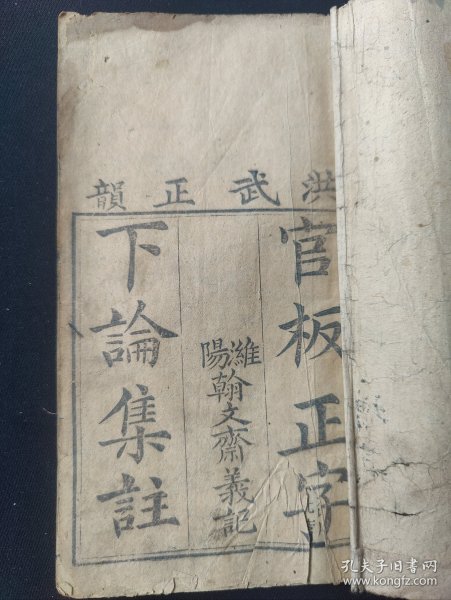 洪武正韻
官板正字
濰陽
翰文齋義記
下論集註
孔夫子旧书网
www.kongfz.com